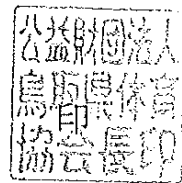 公益財団法人
鳥取県体育
印
協会長印